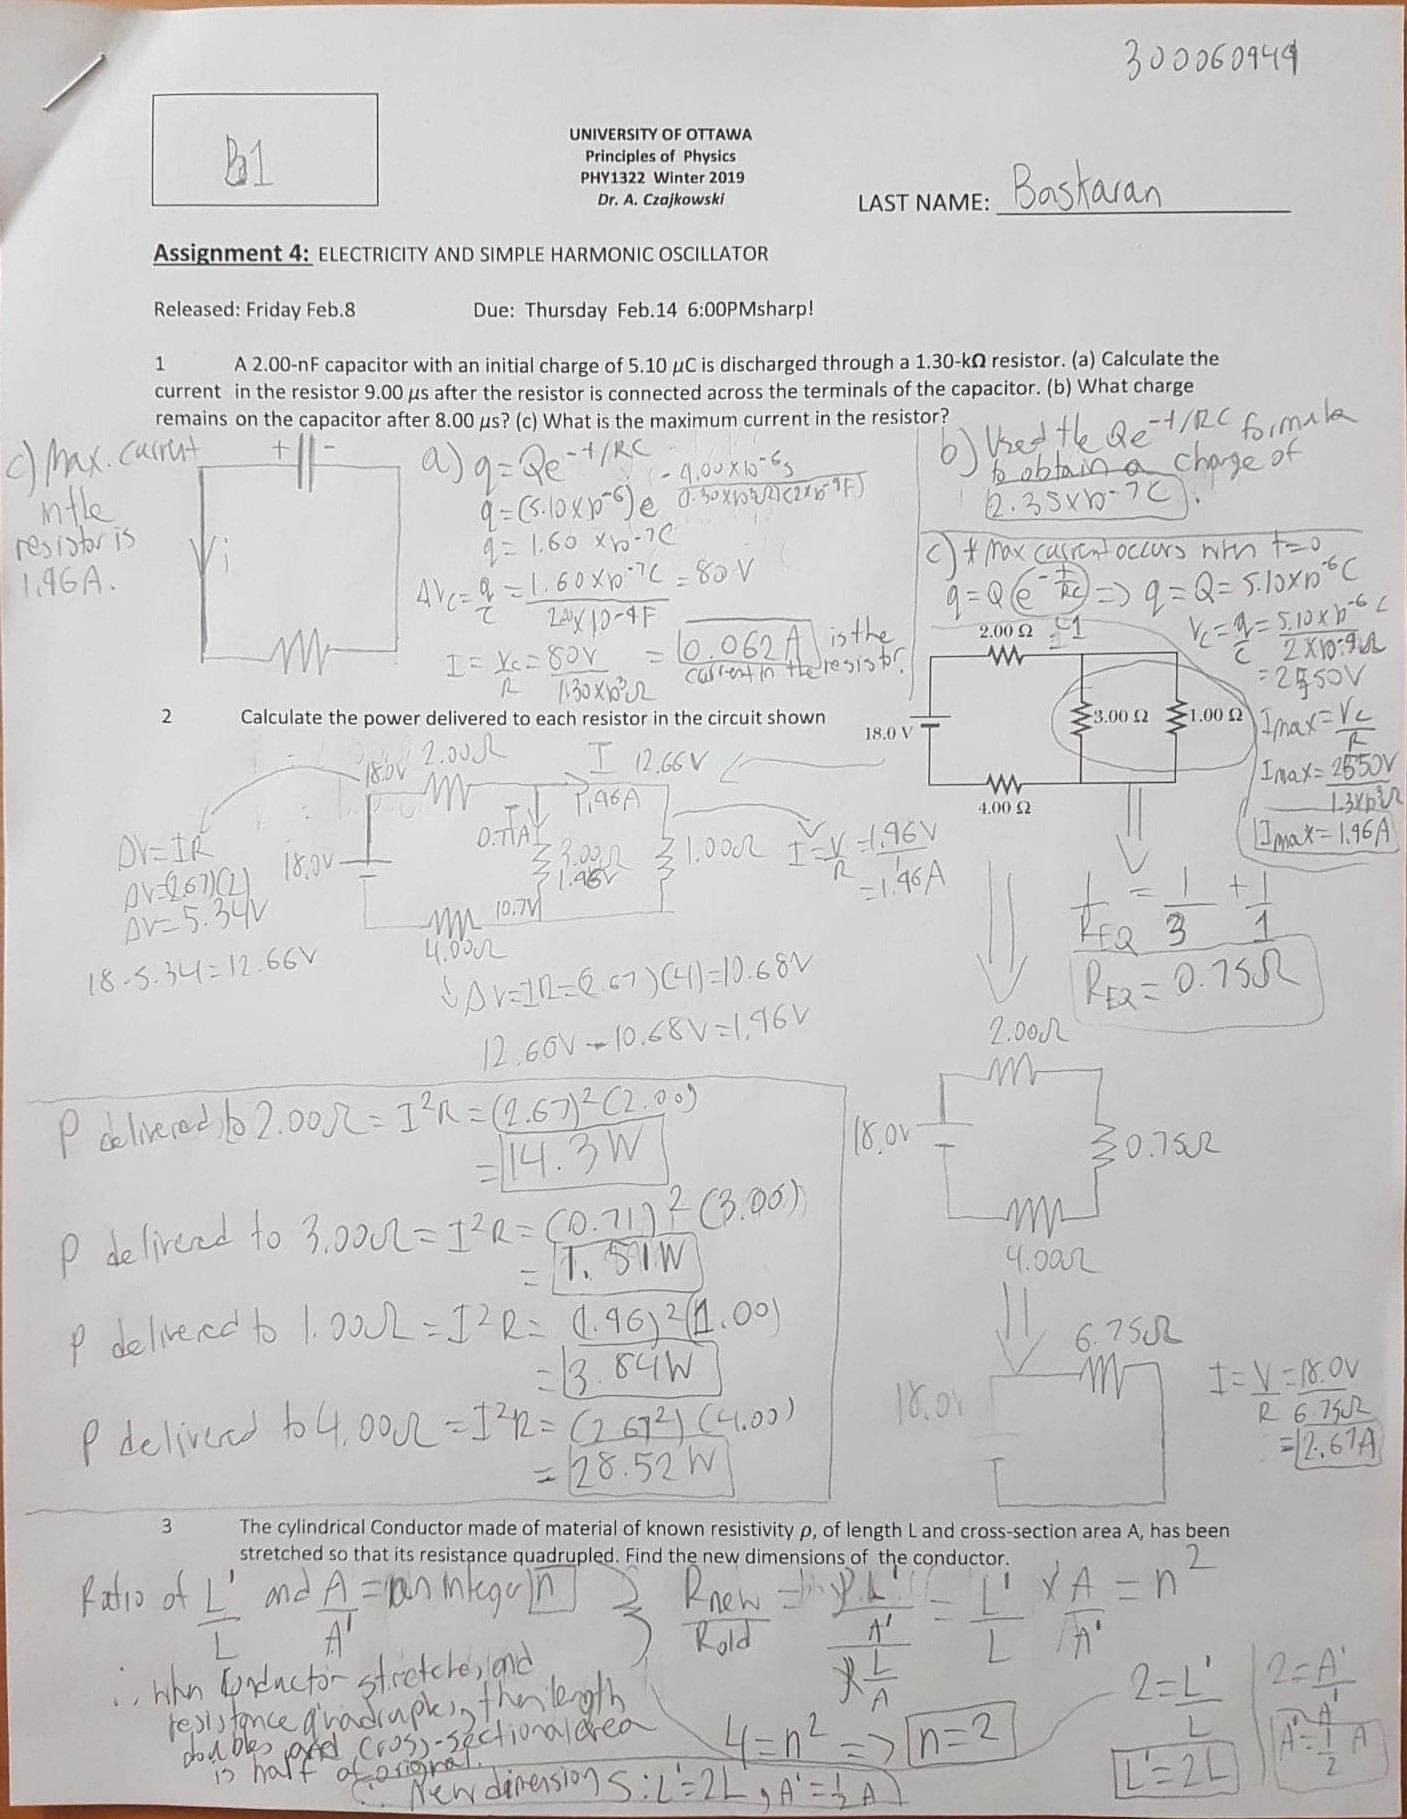 300060949
B1
UNIVERSITY OF OTTAWA
Principles of Physics
PHY1322 Winter 2019
Dr. A. Czajkowski
LAST NAME: Baskaran
Assignment 4: ELECTRICITY AND SIMPLE HARMONIC OSCILLATOR
Released: Friday Feb.8 Due: Thursday Feb.14 6:00PMsharp!
1 A 2.00-nF capacitor with an initial charge of 5.10 µC is discharged through a 1.30-kΩ resistor. (a) Calculate the
current in the resistor 9.00 µs after the resistor is connected across the terminals of the capacitor. (b) What charge
remains on the capacitor after 8.00 µs? (c) What is the maximum current in the resistor?
c) Max. current
in the
resistor is
1.96A.
+ -
i
a) q=Qe-t/RC
q=(5.10x10-6)e -9.00x10-6s / (1.30x10³Ω)(2x10-9F)
q= 1.60 x10-7C
ΔVc=q/C = 1.60x10-7C / 2.00x10-9F = 80V
I = Vc/R = 80V / 1.30x10³Ω = 0.062A is the
current in the resistor.
b) Used the Qe-t/RC formula
to obtain a charge of
2.35x10-7C.
c) * Max current occurs when t=0
q=Q(e-t/RC) => q=Q=5.10x10-6C
=1
Vc=q/C=5.10x10-6C / 2x10-9Ω
=2550V
Imax=Vc/R
Imax=2550V / 1.3x10³Ω
Imax=1.96A
2.00 Ω
18.0 V
3.00 Ω
1.00 Ω
4.00 Ω
2 Calculate the power delivered to each resistor in the circuit shown
18.0V 2.00Ω I 12.66V
1.96A
0.71A
I
18.0V
3.00Ω
1.96V
1.00Ω
10.7V
4.00Ω
I=V/R=1.96V/1
=1.96A
ΔV=IR
ΔV=(2.67)(2)
ΔV=5.34V
18-5.34=12.66V
ΔV=IR=(2.67)(4)=10.68V
12.66V-10.68V=1.96V
1/REQ = 1/3 + 1/1
REQ = 0.75Ω
2.00Ω
18.0V
0.75Ω
4.00Ω
6.75Ω
18.0V
I=V/R=18.0V/6.75Ω
=2.67A
P delivered to 2.00Ω = I²R = (2.67)²(2.00)
= 14.3W
P delivered to 3.00Ω = I²R = (0.71)²(3.00)
= 1.51W
P delivered to 1.00Ω = I²R = (1.96)²(1.00)
= 3.84W
P delivered to 4.00Ω = I²R = (2.67²)(4.00)
= 28.52W
3 The cylindrical Conductor made of material of known resistivity ρ, of length L and cross-section area A, has been
stretched so that its resistance quadrupled. Find the new dimensions of the conductor.
Ratio of L'/L and A/A' = an integer n
Rnew/Rold = (ρL'/A')/(ρL/A) = L'/L x A/A' = n²
∴ When conductor stretches, and
resistance quadruples, then length
doubles and cross-sectional area
is half of original.
4=n² => n=2
2=L'/L
L'=2L
2=A'/A'
A'=1/2 A
∴ New dimensions: L'=2L, A'=½A